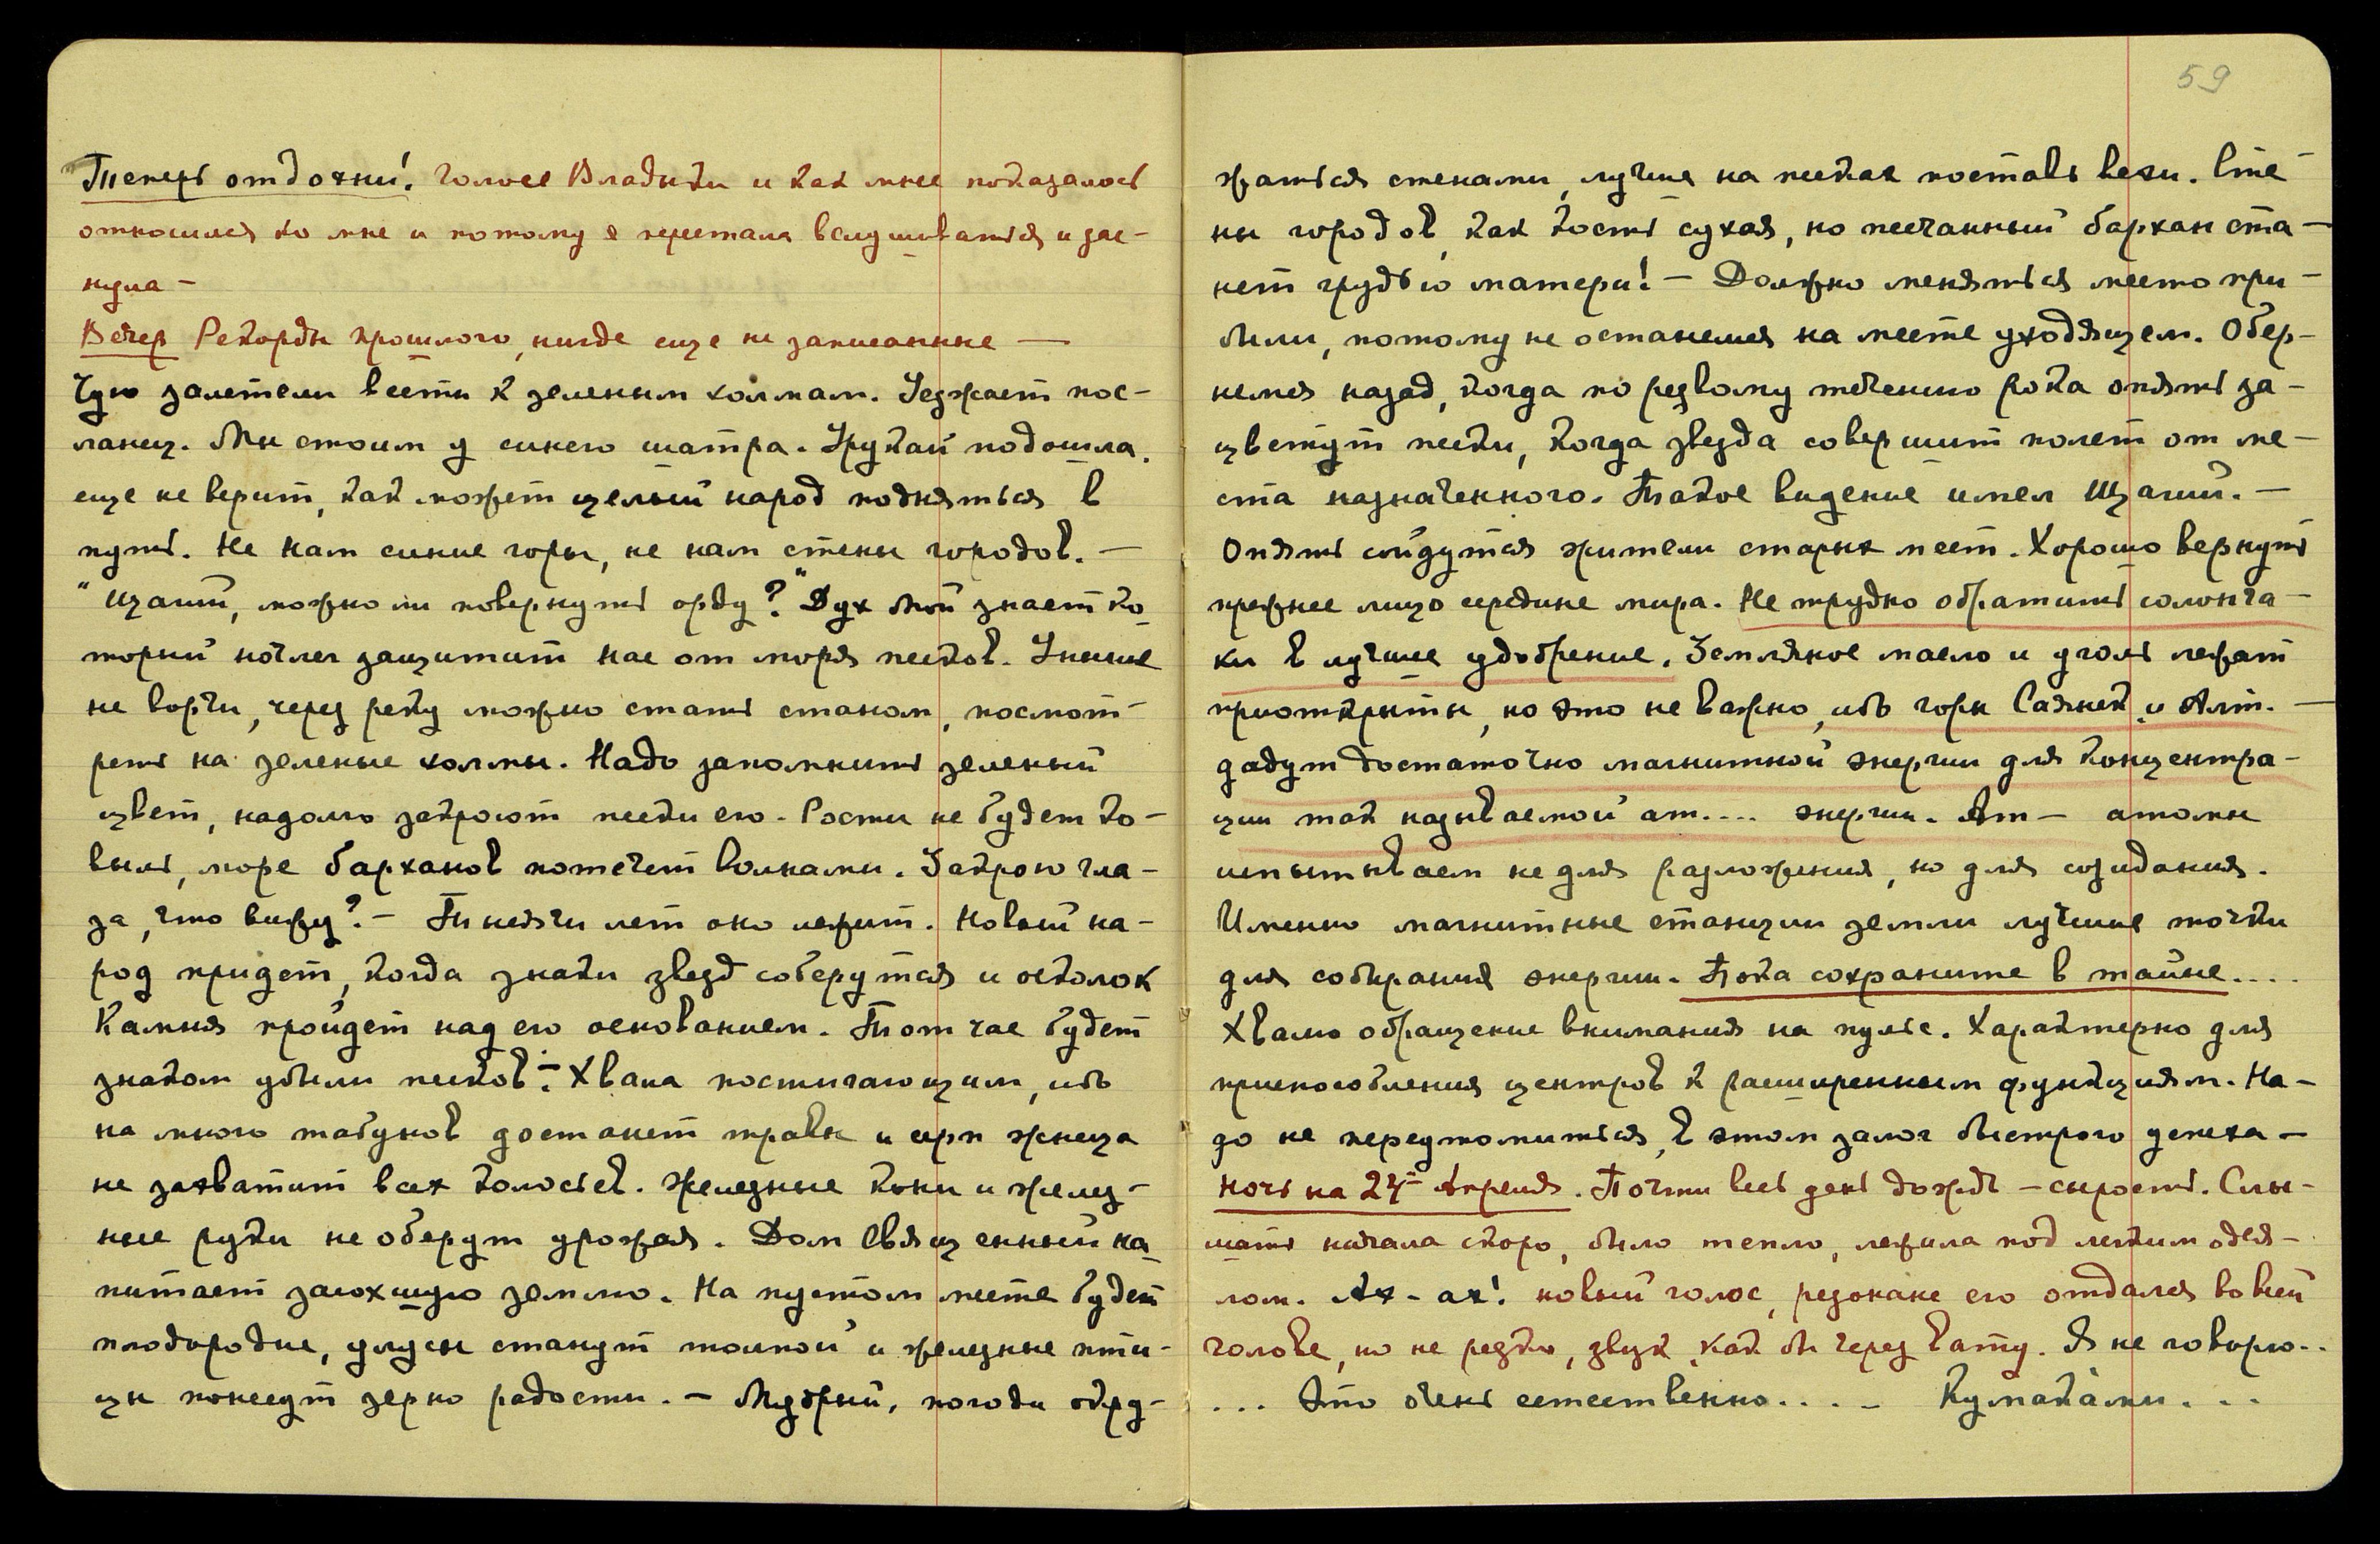 Теперь отдохни! голосе Владыки и как мне показалось
относился ко мне и потому я перестала вслушиваться и зас-
нула –
Вечер Рекорды прошлого, нигде еще не записанные —
Чую залетели вести к зеленым холмам. Уезжает пос-
ланец. Мы стоим у синего шатра. Урукай подошла.
еще не верит, как может целый народ подняться в
путь. Не нам синие горы, не нам стены городов. —
"Цзагий, можно ли повернуть орду?" Дух Мой знает ко
торый ночлег защитит нас от моря песков. Уныние
не ворчи, через реку можно стать станом, посмот-
реть на зеленые холмы. Надо запомнить зеленый
цвет, надолго закроют пески его. Рости не будет ко-
выль, море барханов потечет волнами. Закрою гла-
за, что вижу? – Тысячи лет оно лежит. Новый на-
род придет, когда знаки звезд соберутся и осколок
Камня пройдет над его основанием. Тот час будет
знаком убыли песков: – Хвала постигающим, ибо
на много табунов достанет травы и серп жнеца
не захватит всех колосьев. Железные кони и желез-
ные руки не оберут урожая. Дом Священный на
питает засохшую землю. На пустом месте будет
плодородие, улусы станут толпой и железные пти-
цы понесут зерно радости. – Мудрый, погоди окру-
59
жаться стенами, лучше на песках поставь вехи. Сте-
ны городов, как кость сухая, но песчанный бархан ста-
нет грудью матери! – Должно меняться место при-
были, потому не останемся на месте уходящем. Обер-
немся назад, когда по резвому течению рока опять за-
цветут пески, когда звезда совершит полет от ме-
ста назначенного. Такое видение имел Цзагий. –
Опять сойдутся жители старых мест. Хорошо вернуть
прежнее лицо середине мира. Не трудно обратить солонча-
ки в лучшее удобрение. Земляное масло и уголь лежат
приоткрыты, но это не важно, ибо горы Саянск. и Алт. –
дадут достаточно магнитной энергии для концентра-
ции так называемой ат.... энергии. Ат – атомы
испытываем не для разложения, но для созидания.
Именно магнитные станции земли лучшие точки
для собирания энергии. Пока сохраните в тайне....
Хвалю обращение внимания на пульс. Характерно для
приспособления центров к расширенным функциям. На-
до не переутомиться, в этом залог быстрого успеха –
Ночь на 24-е Апреля. Почти весь день дождь – сырость. Слы-
шать начала скоро, было тепло, лежила под легким одея-
лом. Ах – ах! новый голос, резонанс его отдался во всей
голове, но не резко, звук, как бы через вату. Я не говорю..
... Это очень естественно.... – Кумакáми...